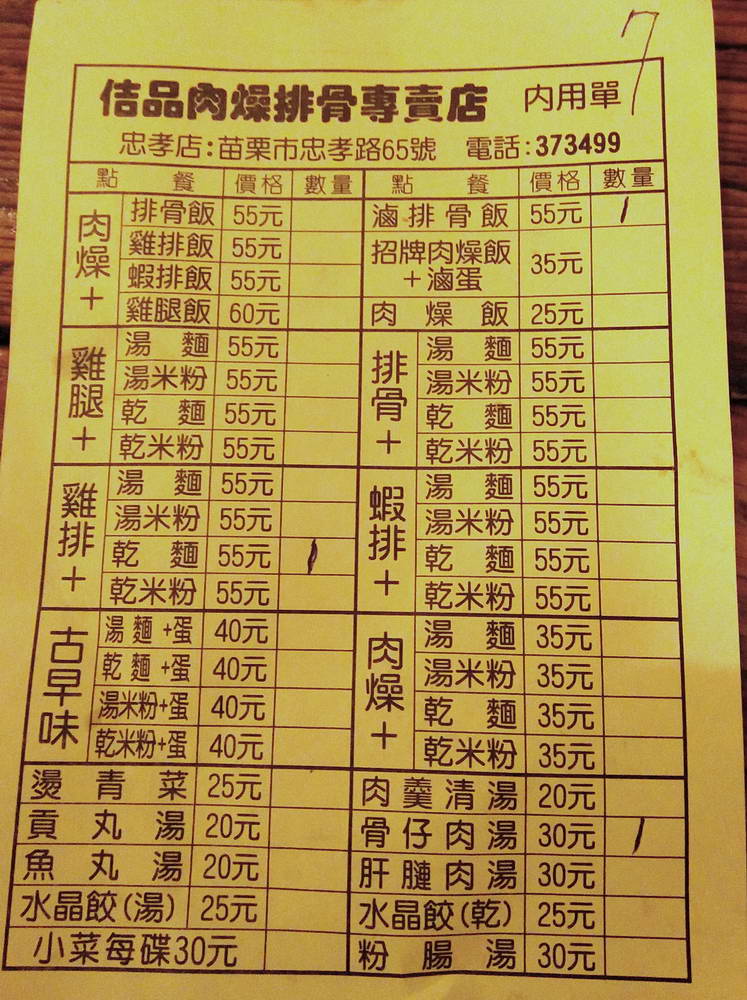 7
佶品肉燥排骨專賣店 內用單
忠孝店:苗栗市忠孝路65號 電話:373499
點 餐 價格 數量 點 餐 價格 數量
肉燥+ 排骨飯 55元
雞排飯 55元
蝦排飯 55元
雞腿飯 60元
滷排骨飯 55元 1
招牌肉燥飯
+滷蛋 35元
肉燥飯 25元
雞腿+ 湯麵 55元
湯米粉 55元
乾麵 55元
乾米粉 55元
排骨+ 湯麵 55元
湯米粉 55元
乾麵 55元
乾米粉 55元
雞排+ 湯麵 55元
湯米粉 55元
乾麵 55元 1
乾米粉 55元
蝦排+ 湯麵 55元
湯米粉 55元
乾麵 55元
乾米粉 55元
古早味 湯麵+蛋 40元
乾麵+蛋 40元
湯米粉+蛋 40元
乾米粉+蛋 40元
肉燥+ 湯麵 35元
湯米粉 35元
乾麵 35元
乾米粉 35元
燙青菜 25元
貢丸湯 20元
魚丸湯 20元
水晶餃(湯) 25元
小菜每碟30元
肉羹清湯 20元
骨仔肉湯 30元 1
肝腱肉湯 30元
水晶餃(乾) 25元
粉腸湯 30元